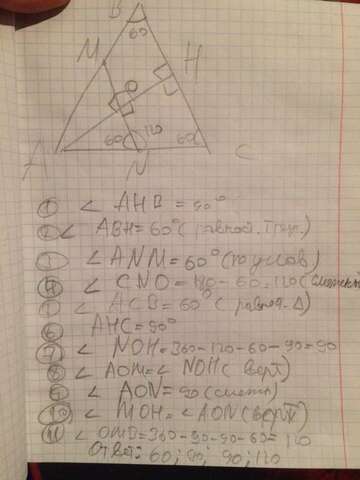 B
60
M
H
O
60 120 60
A N C
1 ∠ AHB = 90°
2 ∠ ABH = 60° (равной. треу.)
3 ∠ ANM = 60° (по услов)
4 ∠ CNO = 180 - 60 = 120 (смежный)
5 ∠ ACB = 60° (равнос. Δ)
6 AHC = 90°
7 ∠ NOH = 360 - 120 - 60 - 90 = 90
8 ∠ AOM = ∠ NOH (верт)
9 ∠ AON = 90 (смеж)
10 ∠ MOH = ∠ AON (верт)
11 ∠ OMB = 360 - 90 - 90 - 60 = 120
Ответ: 60; 90; 90; 120